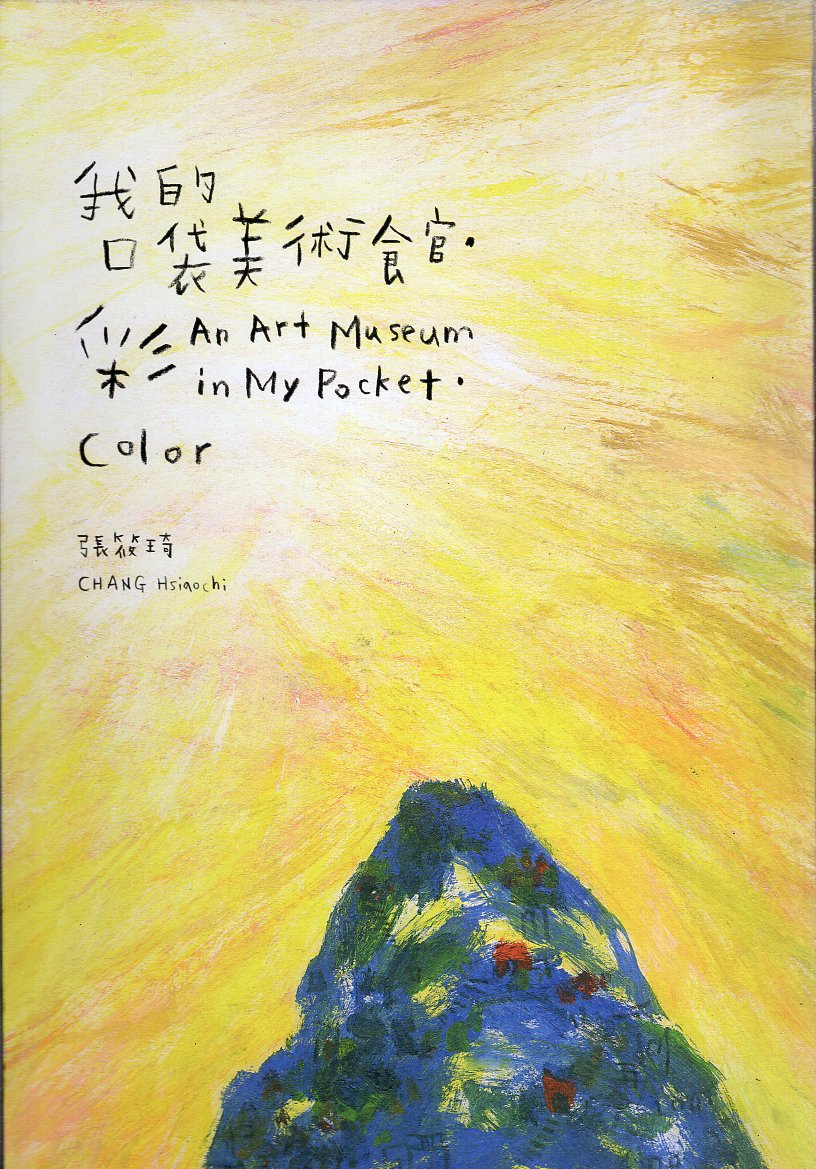 我的
口袋美術館·
彩 An Art Museum
in My Pocket·
Color
張筱琦
CHANG Hsiaochi